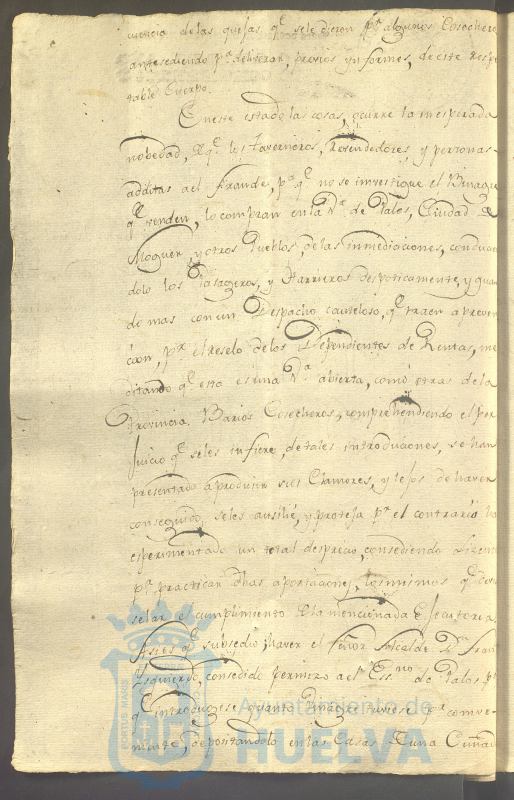 cuencia de las quejas qe. se le dieron pr. algunos Cosechero
antesediendo pa. deliverar, previos ynformes, de este Respe
table Cuerpo.
En este estado las cosas, ocurre la inesperada
nobedad, de qe. los Taverneros, Revendedores y personas
additas ael fraude, pa. qe. no se investigue el Binagre
qe. venden, lo compran en la Va. de Palos, Ciudad de
Moguer, y otros Pueblos, de las inmediaciones, conducien
dolo los Pasageros, y Harrieros despoticamente, y quan
do mas con un Despacho cauteloso, qe. traen a preven
cion, pr. el reselo de los Dependientes de Rentas, me
ditando qe. esta es una Va. abierta, como otras de la
Provincia. Barios Cosecheros, comprehendiendo el per
juicio qe. se les infiere, de tales introduciones, se han
presentado a producir sus Clamores, y lejos de haver
conseguido, se les ausilie, y proteja pr. el contrario ha
esperimentado un total desprecio, consediendo Licencia
pa. practicar dhas aportaciones, los mismos qe.
selar el cumplimiento de la mencionada Executoria.
Asi es qe. subsedio, haver el señor Alcalde Dn. Fran
Izquierdo, consedido permizo ael Essno. de Palos pa.
qe. introdugese quanto Binagre tuviese pr. combe
niente, depositandolo en las Casas de una Cuñada
Ayuntamiento de
HUELVA
PORTUS MARIS